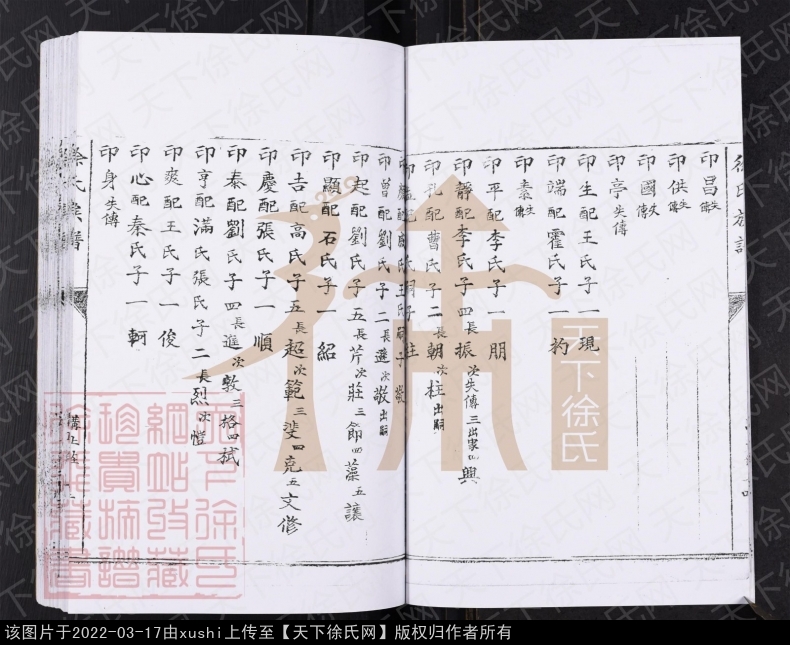 印昌失傳
印供失傳
印國失傳
印亭失傳
印生配王氏子一現
印端配霍氏子一杓
印素失傳
印平配李氏子一朋
印靜配李氏子四長振次失傳三出家四興
印孔配曹氏子二長朝次柱出嗣
印曾配劉氏子二長選次敬出嗣
印起配劉氏子五長芹次莊三節四藻五讓
印顯配石氏子一紹
印吉配高氏子五長超次範三斐四克五文修
印慶配張氏子一順
印泰配劉氏子四長進次敦三格四拭
印亨配滿氏張氏子二長烈次愷
印爽配王氏子一俊
印心配秦氏子一軻
印身失傳
徐氏宗譜
天下徐氏
天下徐氏网
该图片于2022-03-17由xushi上传至【天下徐氏网】版权归作者所有